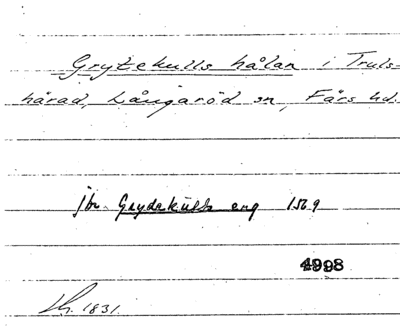 Grytekulls hålan i Truls-
härad, Långaröd sn, Färs hd.
jfr Grydekulls eng 1569
4998
1831